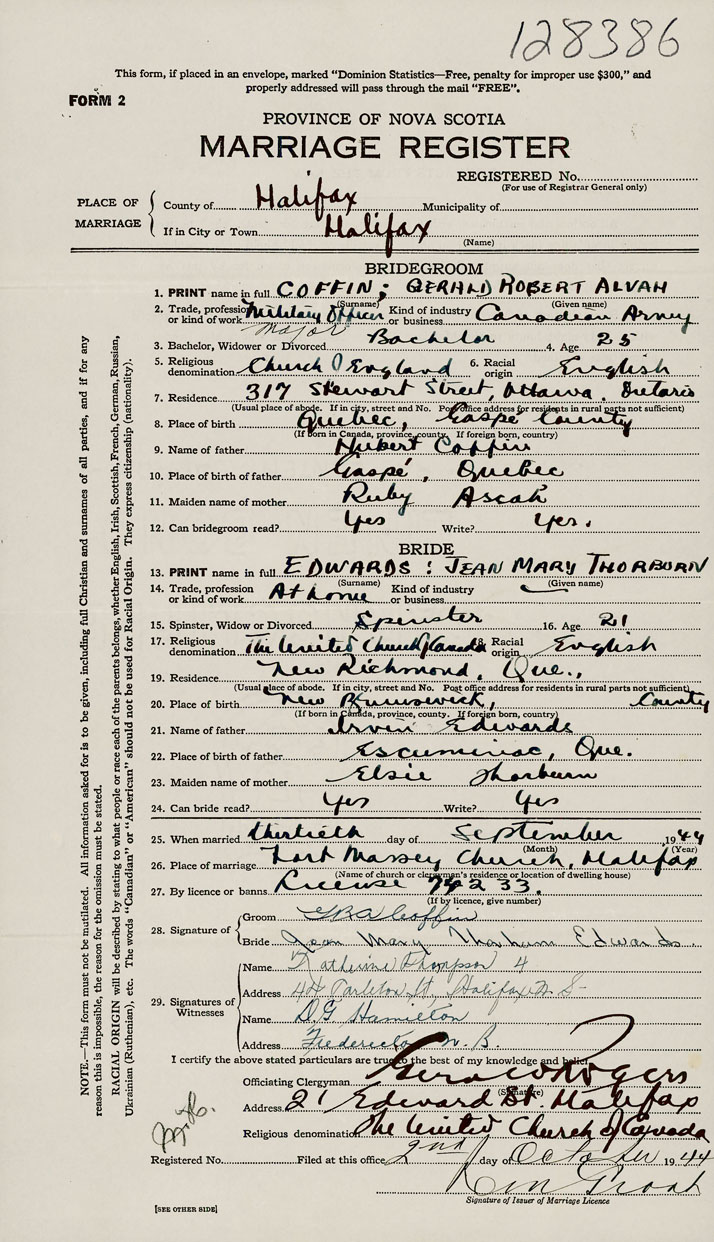 128386
This form, if placed in an envelope, marked "Dominion Statistics—Free, penalty for improper use $300," and
properly addressed will pass through the mail "FREE".
FORM 2
PROVINCE OF NOVA SCOTIA
MARRIAGE REGISTER
REGISTERED No.
(For use of Registrar General only)
PLACE OF MARRIAGE
County of Halifax Municipality of
If in City or Town Halifax
(Name)
BRIDEGROOM
1. PRINT name in full COFFIN; GERALD ROBERT ALVAH
(Surname) (Given name)
2. Trade, profession or kind of work Military Officer Major Kind of industry or business Canadian Army
3. Bachelor, Widower or Divorced Bachelor 4. Age 25
5. Religious denomination Church of England 6. Racial origin English
7. Residence 317 Stewart Street, Ottawa. Ontario
(Usual place of abode. If in city, street and No. Post office address for residents in rural parts not sufficient)
8. Place of birth Quebec, Gaspé County
(If born in Canada, province, county. If foreign born, country)
9. Name of father Hubert Coffin
10. Place of birth of father Gaspé, Quebec
11. Maiden name of mother Ruby Ascah
12. Can bridegroom read? Yes Write? Yes.
BRIDE
13. PRINT name in full EDWARDS: JEAN MARY THORBURN
(Surname) (Given name)
14. Trade, profession or kind of work At home Kind of industry or business
15. Spinster, Widow or Divorced Spinster 16. Age 21
17. Religious denomination The United Church of Canada 18. Racial origin English
19. Residence New Richmond, Que.,
(Usual place of abode. If in city, street and No. Post office address for residents in rural parts not sufficient)
20. Place of birth New Brunswick, County
(If born in Canada, province, county. If foreign born, country)
21. Name of father Irvin Edwards
22. Place of birth of father Escuminac, Que.
23. Maiden name of mother Elsie Thorburn
24. Can bride read? Yes Write? Yes
25. When married thirtieth day of September 1944
(Month) (Year)
26. Place of marriage Fort Massey Church, Halifax
(Name of church or clergyman's residence or location of dwelling house)
27. By licence or banns License 74233.
(If by licence, give number)
28. Signature of
Groom GRA Coffin
Bride Jean Mary Thorburn Edwards.
29. Signatures of Witnesses
Name Katherine Thompson
Address Halifax N.S.
Name D.G Hamilton
Address Fredericton N.B.
I certify the above stated particulars are true to the best of my knowledge and belief.
Officiating Clergyman Rogers
(Signature)
Address 21 Edward St. Halifax
Religious denomination The United Church of Canada
Registered No. Filed at this office 2nd day of October 1944
Signature of Issuer of Marriage Licence
[SEE OTHER SIDE]
NOTE.—This form must not be mutilated. All information asked for is to be given, including full Christian and surnames of all parties, and if for any
reason this is impossible, the reason for the omission must be stated.
RACIAL ORIGIN will be described by stating to what people or race each of the parents belongs, whether English, Irish, Scottish, French, German, Russian,
Ukrainian (Ruthenian), etc. The words "Canadian" or "American" should not be used for Racial Origin. They express citizenship (nationality).